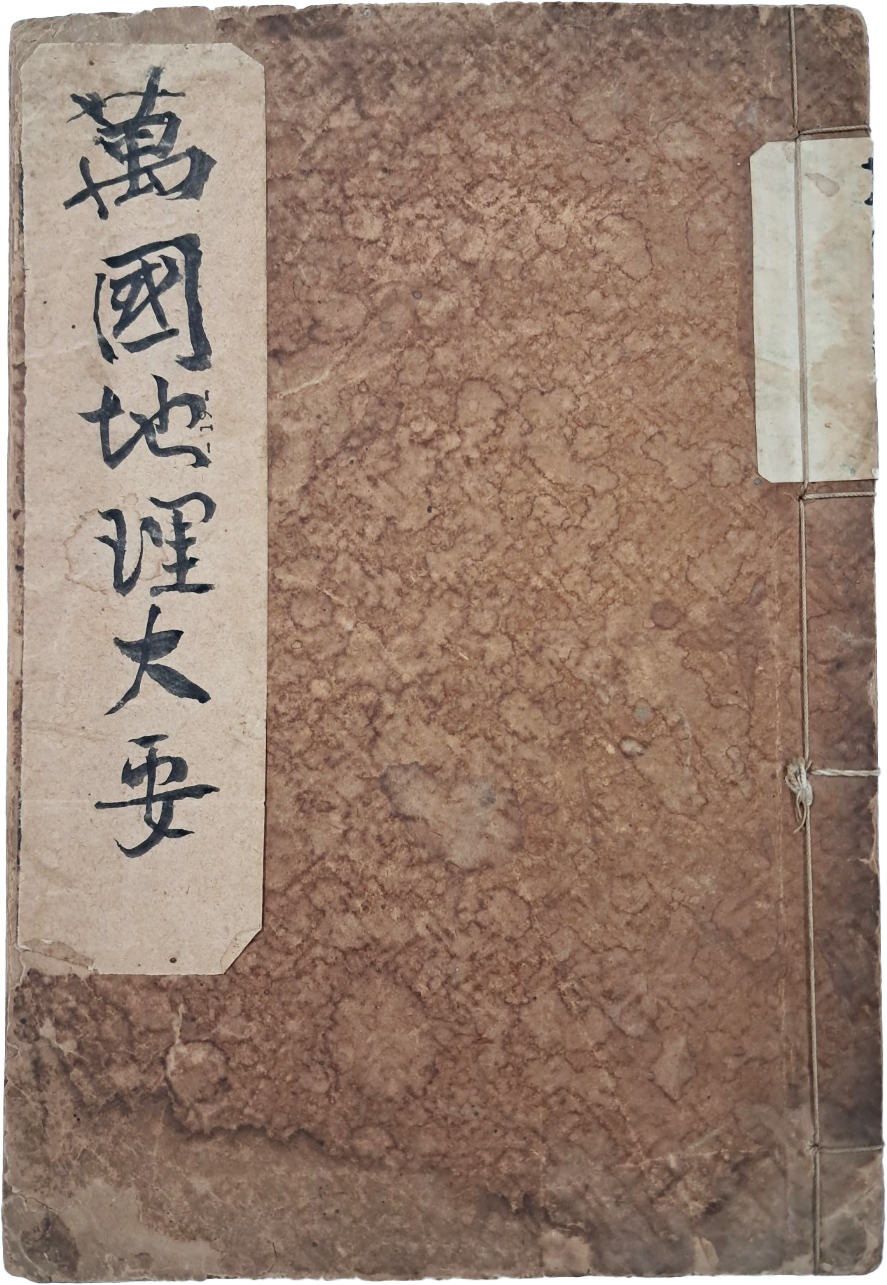 萬國地理大要